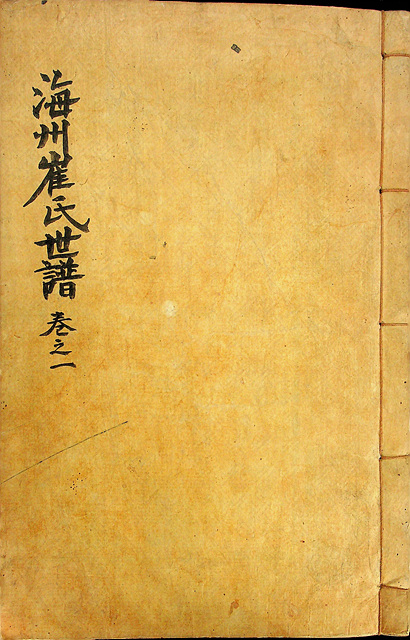 海州崔氏世譜 卷之一